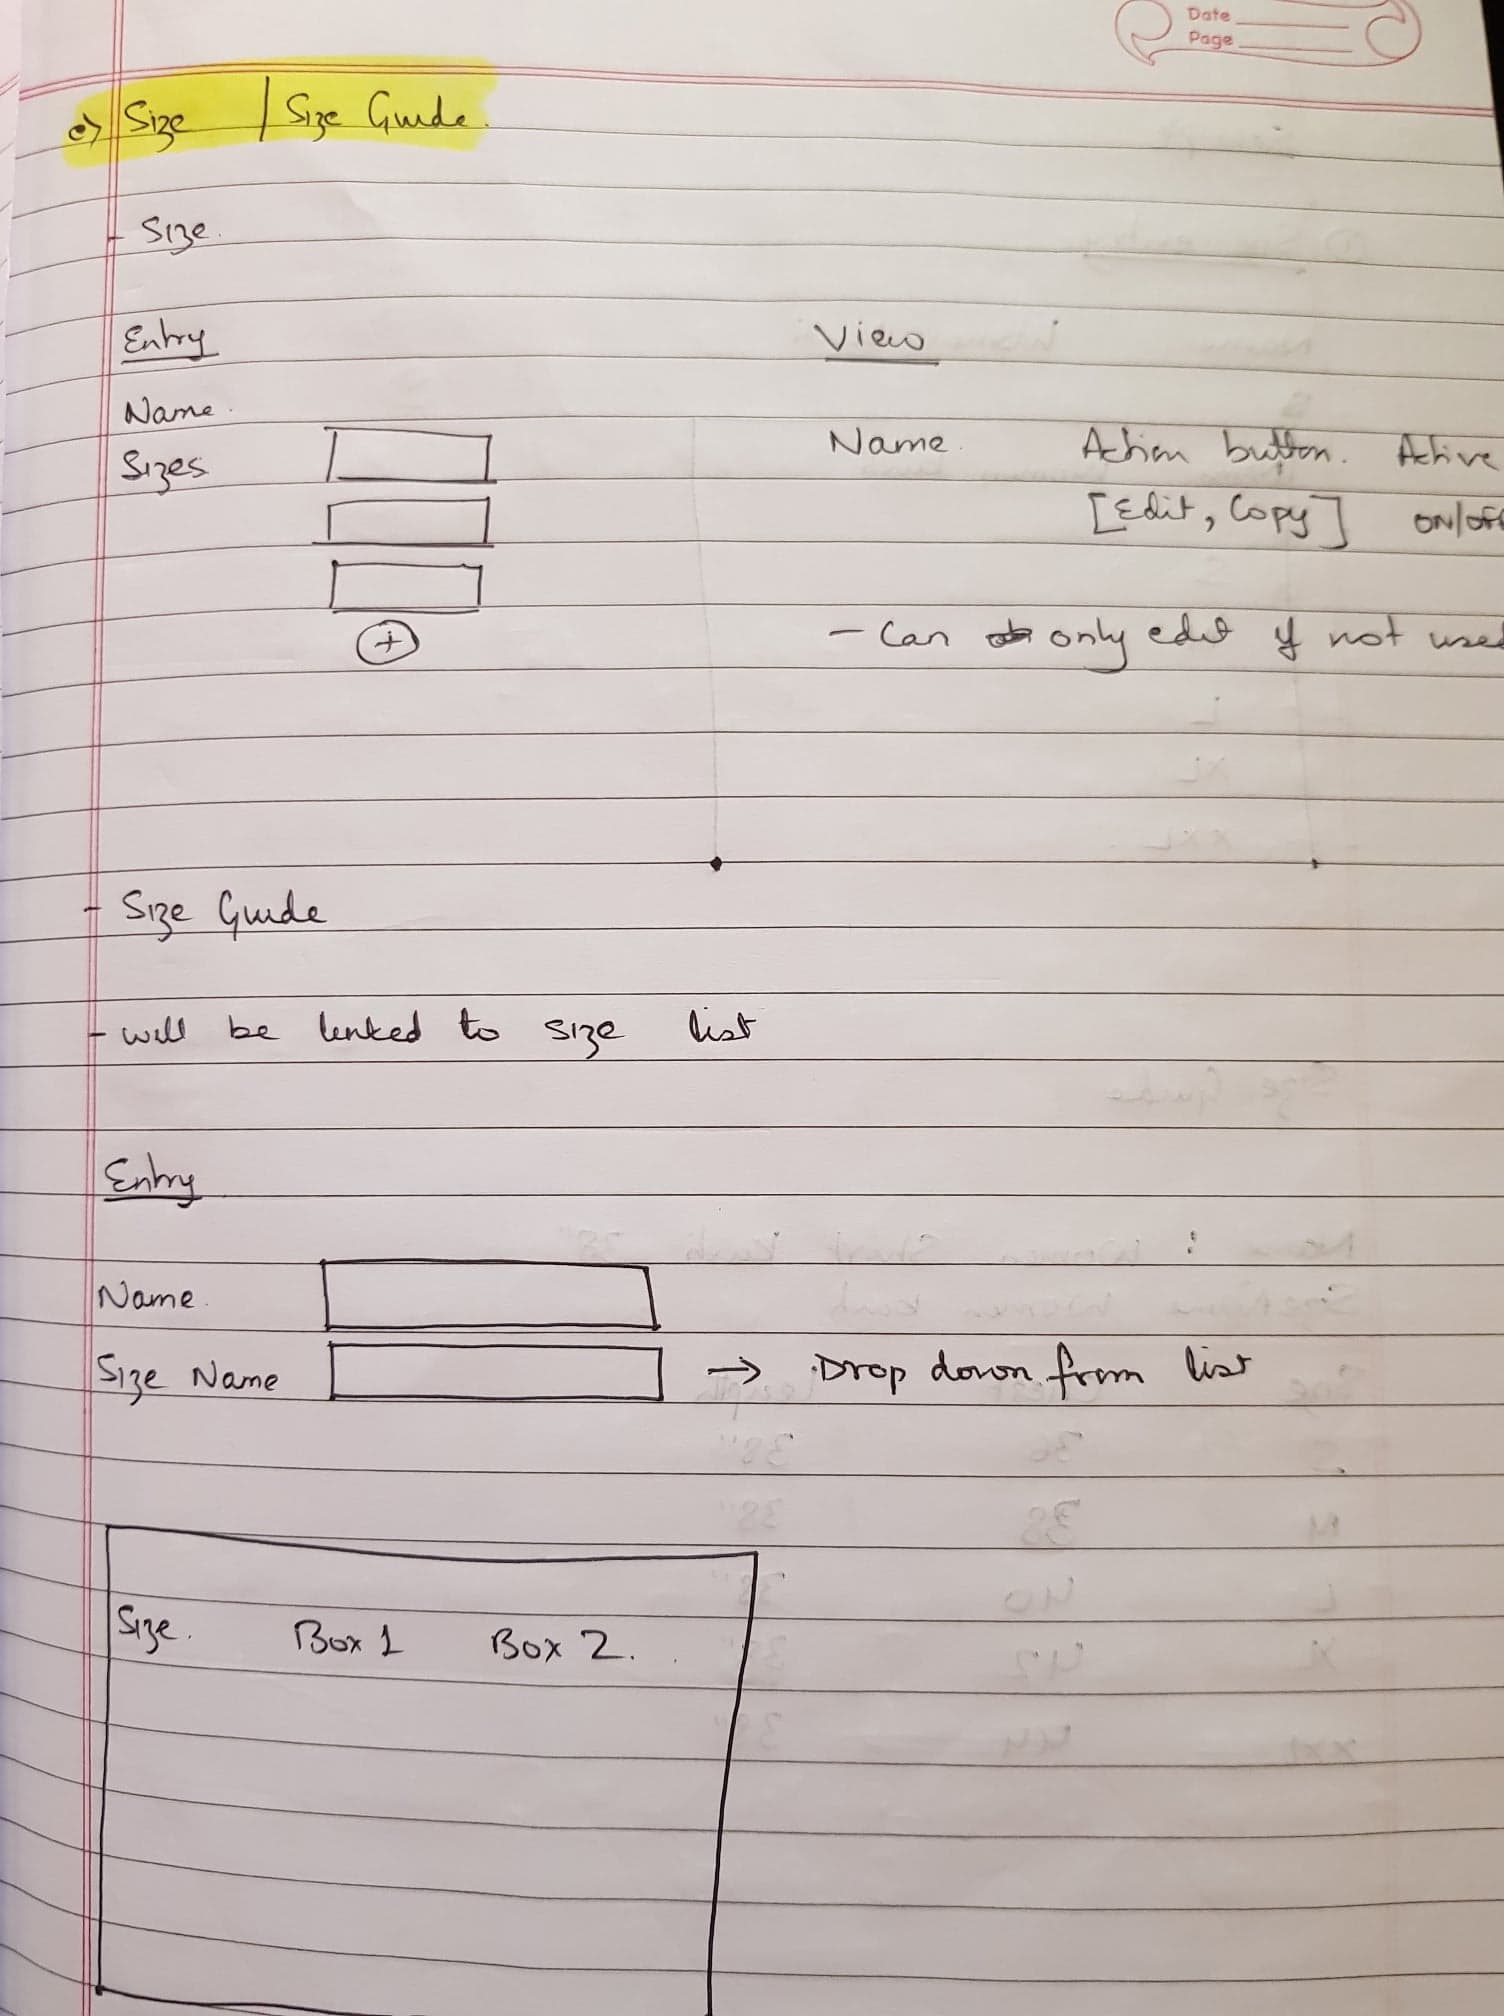 Date
Page
e) Size | Size Guide.
- Size.
Entry
View
Name.
Sizes
+
Name. Action button. Active
[Edit, Copy] ON/OFF
- Can only edit if not used
- Size Guide
- will be linked to size list
Entry
Name.
Size Name → Drop down from list
Size. Box 1 Box 2.